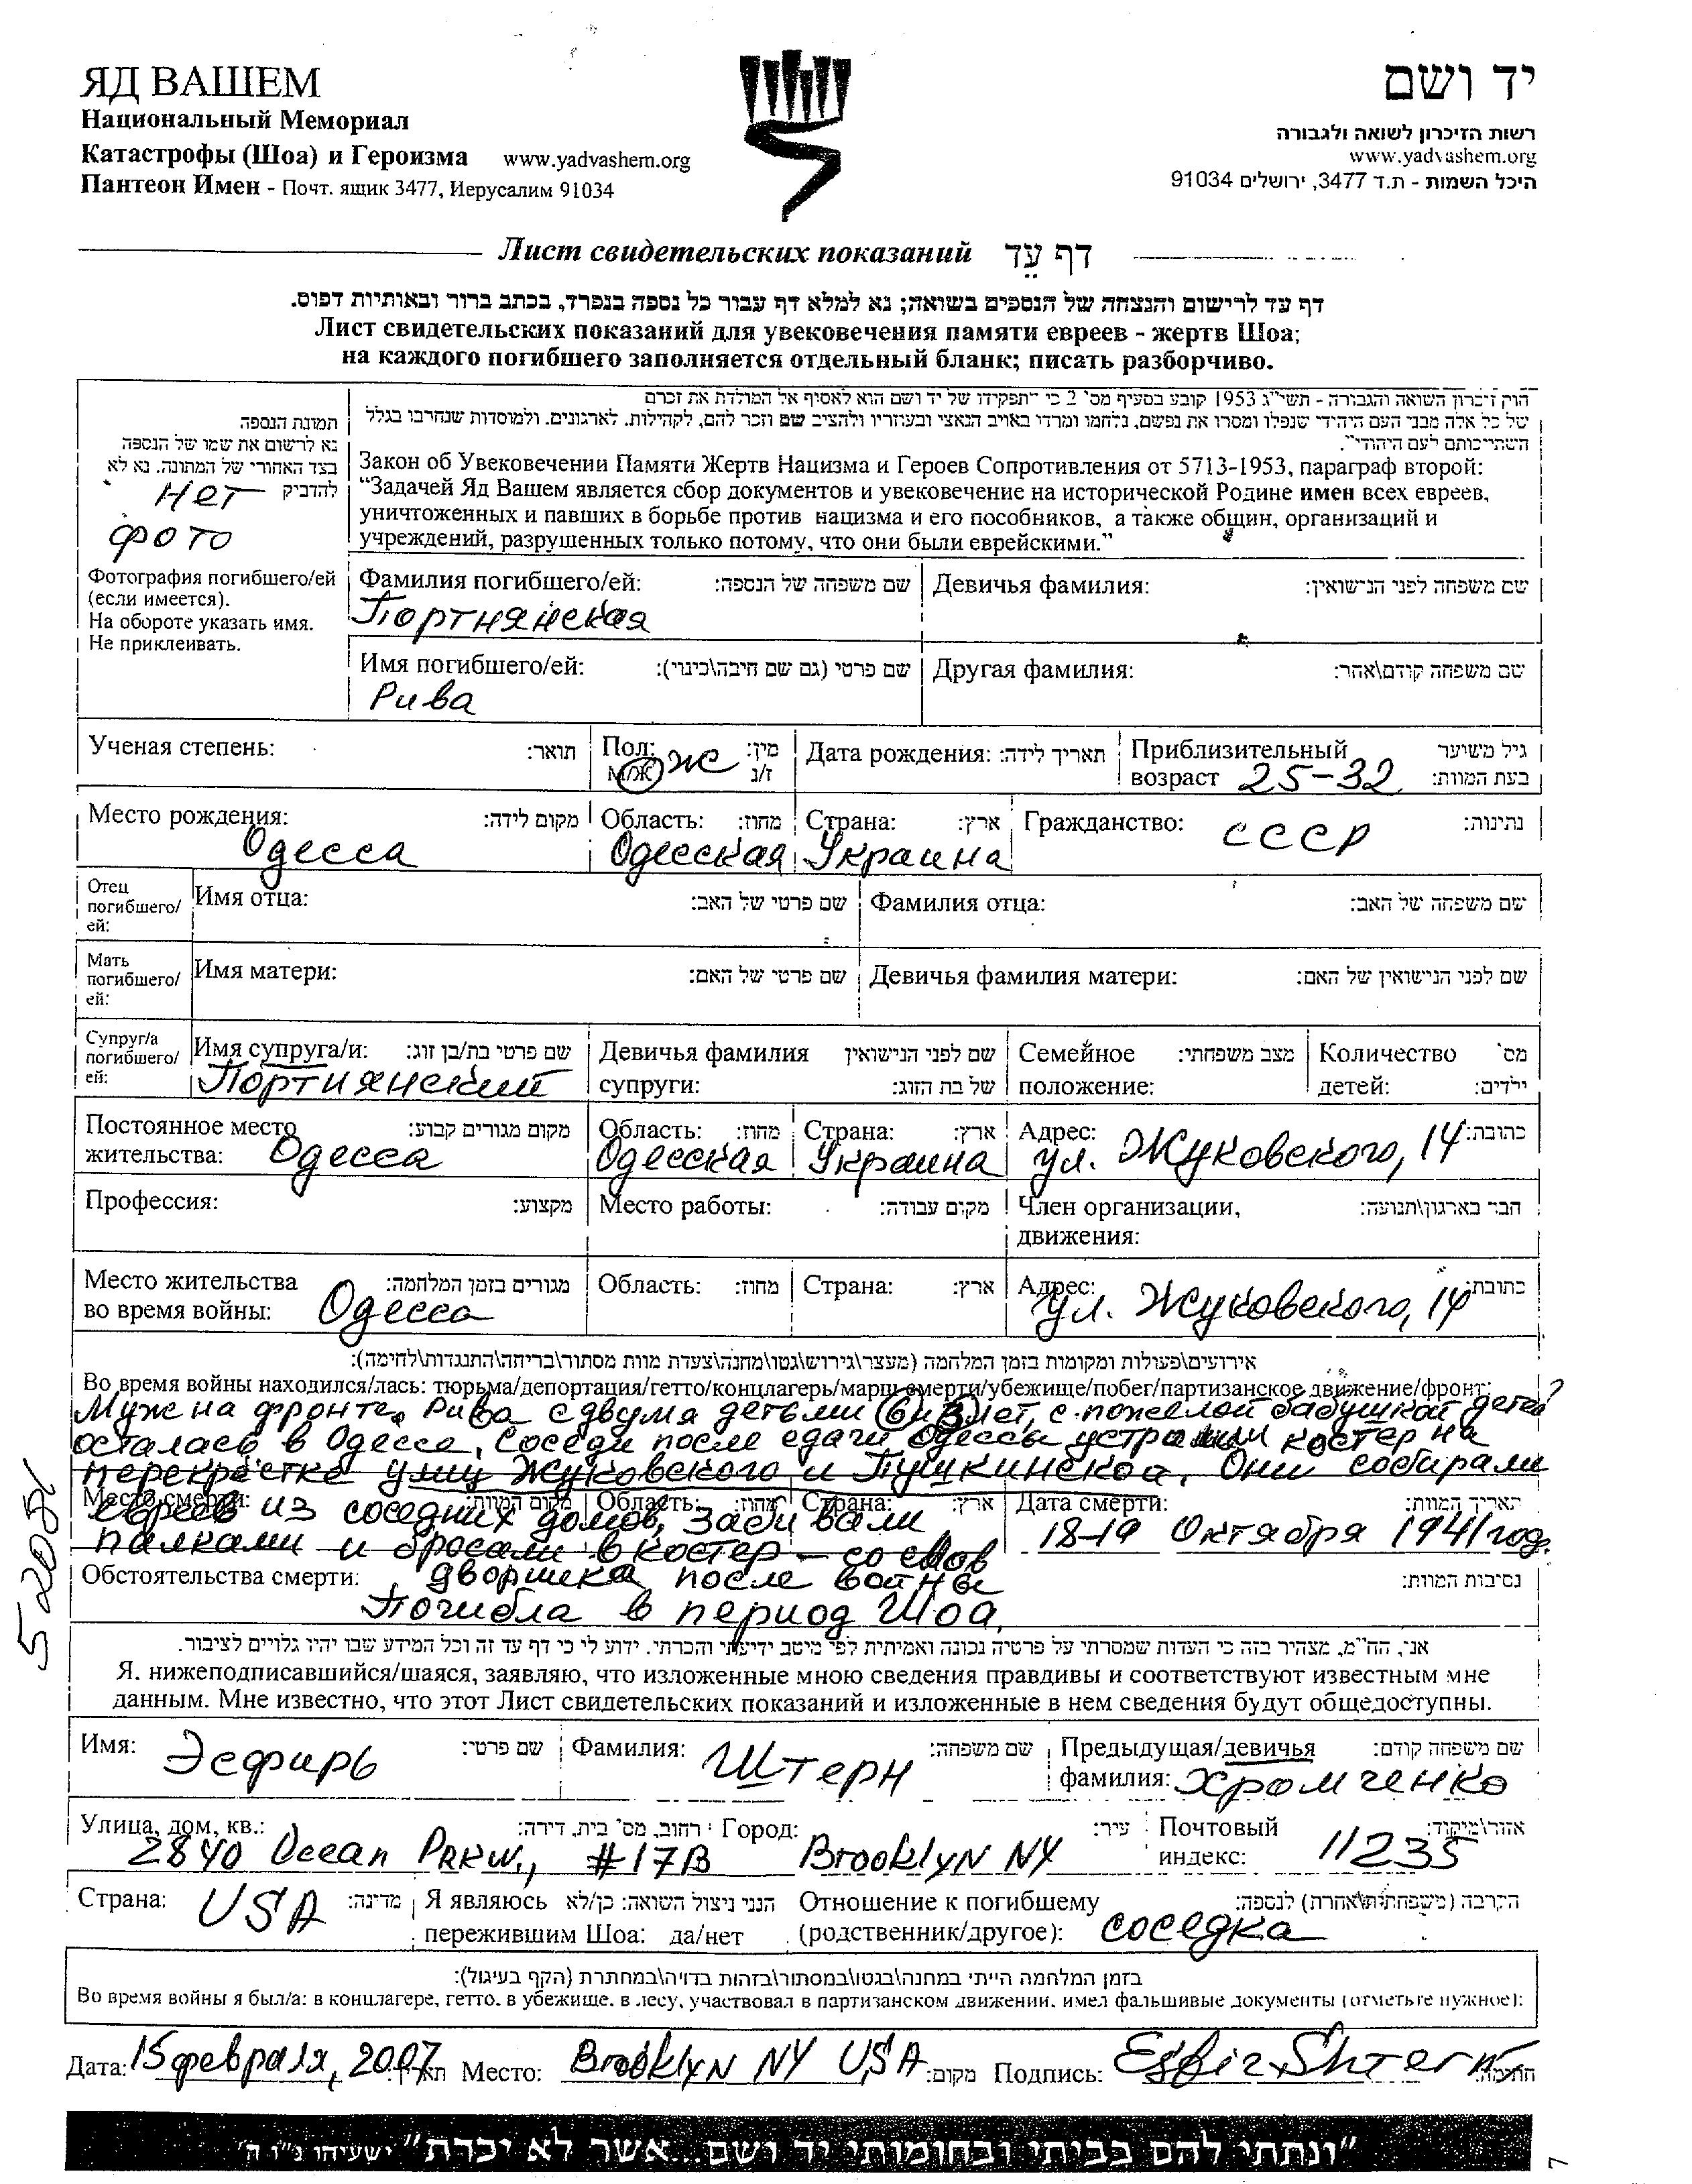 ЯД ВАШЕМ
Национальный Мемориал
Катастрофы (Шоа) и Героизма www.yadvashem.org
Пантеон Имен - Почт. ящик 3477, Иерусалим 91034
יד ושם
רשות הזיכרון לשואה ולגבורה
www.yadvashem.org
היכל השמות - ת.ד 3477, ירושלים 91034
Лист свидетельских показаний דף עֵד
דף עד לרישום והנצחה של הנספים בשואה; נא למלא דף עבור כל נספה בנפרד, בכתב ברור ובאותיות דפוס.
Лист свидетельских показаний для увековечения памяти евреев - жертв Шоа;
на каждого погибшего заполняется отдельный бланк; писать разборчиво.
תמונת הנספה
נא לרשום את שמו של הנספה
בצד האחורי של התמונה. נא לא
להדביק
Нет
фото
Фотография погибшего/ей
(если имеется).
На обороте указать имя.
Не приклеивать.
חוק זיכרון השואה והגבורה - תשי"ג 1953 קובע בסעיף מס' 2 כי "תפקידו של יד ושם הוא לאסוף אל המולדת את זכרם
של כל אלה מבני העם היהודי שנפלו ומסרו את נפשם, נלחמו ומרדו באויב הנאצי ובעוזריו ולהציב שם וזכר להם, לקהילות, לארגונים, ולמוסדות שנחרבו בגלל
השתייכותם לעם היהודי".
Закон об Увековечении Памяти Жертв Нацизма и Героев Сопротивления от 5713-1953, параграф второй:
“Задачей Яд Вашем является сбор документов и увековечение на исторической Родине имен всех евреев,
уничтоженных и павших в борьбе против нацизма и его пособников, а также общин, организаций и
учреждений, разрушенных только потому, что они были еврейскими.”
Фамилия погибшего/ей: שם משפחה של הנספה: Девичья фамилия: שם משפחה לפני הנישואין:
Портнянская
Имя погибшего/ей: שם פרטי (גם שם חיבה\כינוי): Другая фамилия: שם משפחה קודם\אחר:
Рива
Ученая степень: תואר: Пол: מין: Дата рождения: תאריך לידה: Приблизительный גיל משוער
М/Ж ж ז/נ возраст 25-32 בעת המוות:
Место рождения: מקום לידה: Область: מחוז: Страна: ארץ: Гражданство: СССР נתינות:
Одесса Одесская Украина
Отец
погибшего/
ей:
Имя отца: שם פרטי של האב: Фамилия отца: שם משפחה של האב:
Мать
погибшего/
ей:
Имя матери: שם פרטי של האם: Девичья фамилия матери: שם לפני הנישואין של האם:
Супруг/а
погибшего/
ей:
Имя супруга/и: שם פרטי בת/בן זוג: Девичья фамилия שם לפני הנישואין Семейное מצב משפחתי: Количество מס'
Портнянский супруги: של בת הזוג: положение: детей: ילדים:
Постоянное место מקום מגורים קבוע: Область: מחוז: Страна: ארץ: Адрес: כתובת:
жительства: Одесса Одесская Украина ул. Жуковского, 14
Профессия: מקצוע: Место работы: מקום עבודה: Член организации, חבר בארגון\תנועה:
движения:
Место жительства מגורים בזמן המלחמה: Область: מחוז: Страна: ארץ: Адрес: כתובת:
во время войны: Одесса ул. Жуковского, 14
אירועים\פעולות ומקומות בזמן המלחמה (מעצר\גירוש\גטו\מחנה\צעדת מוות מסתור\בריחה\התנגדות\לחימה):
Во время войны находился/лась: тюрьма/депортация/гетто/концлагерь/марш смерти/убежище/побег/партизанское движение/фронт:
Муж на фронте. Рива с двумя детьми 6 и 3 лет, с пожелой бабушкой детей
осталась в Одессе. Соседи после сдачи Одессы устраили костер на
перекрёстке улиц Жуковского и Пушкинской. Они собирали
Место смерти: מקום המוות: Область: מחוז: Страна: ארץ: Дата смерти: תאריך המוות:
евреев из соседних домов, забивали
18-19 Октября 1941 год.
палками и бросали в костер - со слов
Обстоятельства смерти: дворника после войны נסיבות המוות:
Погибла в период Шоа.
520581
אני, הח"מ, מצהיר בזה כי העדות שמסרתי על פרטיה נכונה ואמיתית לפי מיטב ידיעתי והכרתי. ידוע לי כי דף עד זה וכל המידע שבו יהיו גלויים לציבור.
Я, нижеподписавшийся/шаяся, заявляю, что изложенные мною сведения правдивы и соответствуют известным мне
данным. Мне известно, что этот Лист свидетельских показаний и изложенные в нем сведения будут общедоступны.
Имя: Эсфирь שם פרטי: Фамилия: Штерн שם משפחה: Предыдущая/девичья שם משפחה קודם:
фамилия: Хромченко
Улица, дом, кв.: רחוב, מס' בית, דירה: Город: עיר: Почтовый אזור\מיקוד:
2840 Ocean Prkw., #17B Brooklyn NY индекс: 11235
Страна: USA מדינה: Я являюсь הנני ניצול השואה: כן/לא Отношение к погибшему הקרבה (משפחתית\אחרת) לנספה:
пережившим Шоа: да/нет (родственник/другое): соседка
בזמן המלחמה הייתי במחנה\בגטו\במסתור\בזהות בדויה\במחתרת (הקף בעיגול):
Во время войны я был/а: в концлагере, гетто, в убежище, в лесу, участвовал в партизанском движении, имел фальшивые документы (отметьте нужное):
Дата: 15 февраля, 2007 Место: Brooklyn NY USA מקום: Подпись: Esfir Shtern חתימה:
"ונתתי להם בביתי ובחומותי יד ושם...אשר לא יכרת" ישעיהו נ"ו ה'
7